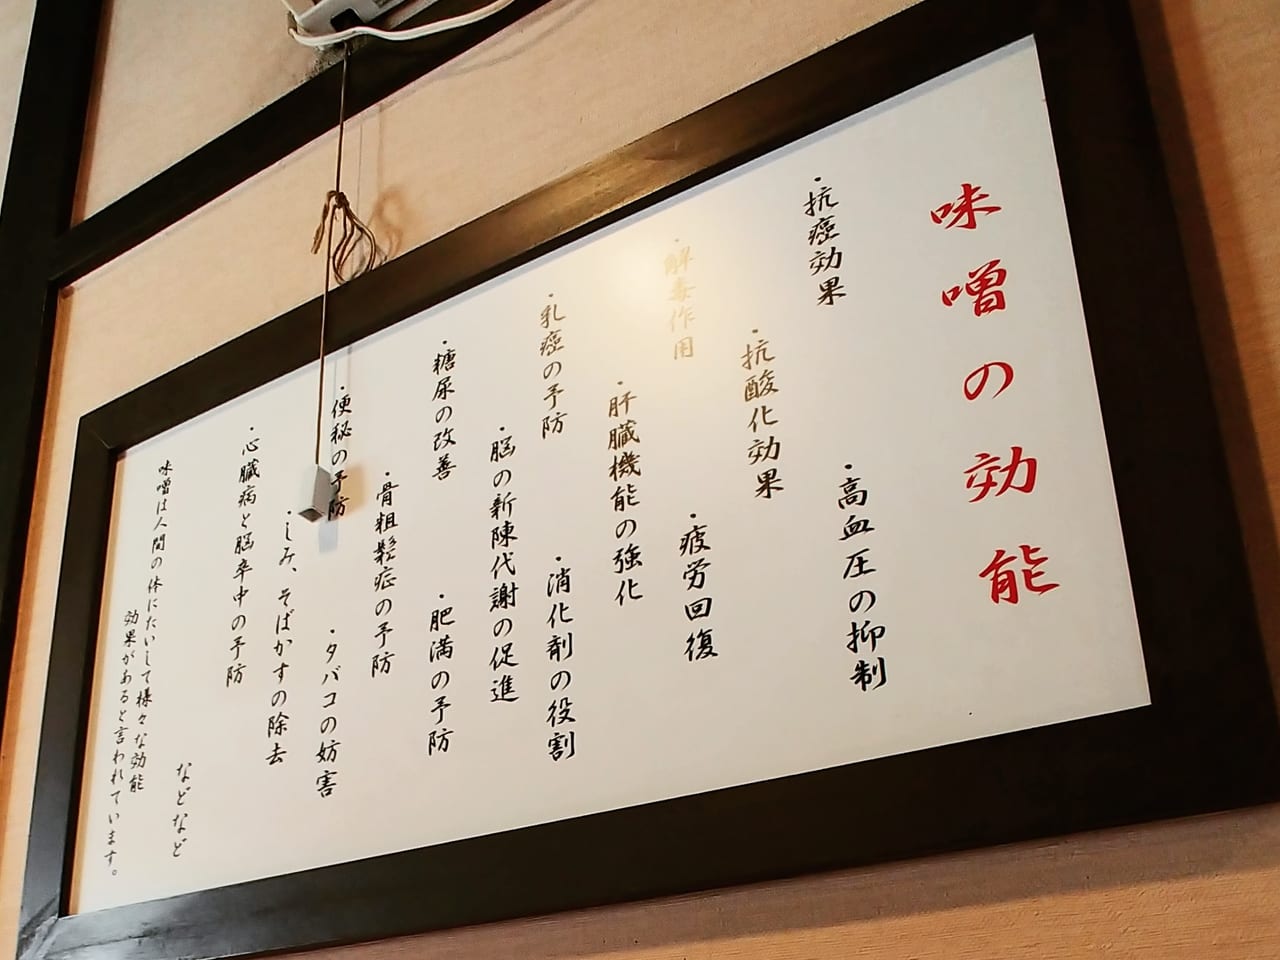 味噌の効能
・抗癌効果
・高血圧の抑制
・抗酸化効果
・解毒作用
・疲労回復
・肝臓機能の強化
・乳癌の予防
・消化剤の役割
・脳の新陳代謝の促進
・糖尿の改善
・肥満の予防
・骨粗鬆症の予防
・便秘の予防
・タバコの妨害
・しみ、そばかすの除去
・心臓病と脳卒中の予防
などなど
味噌は人間の体にたいして様々な効能
効果があると言われています。